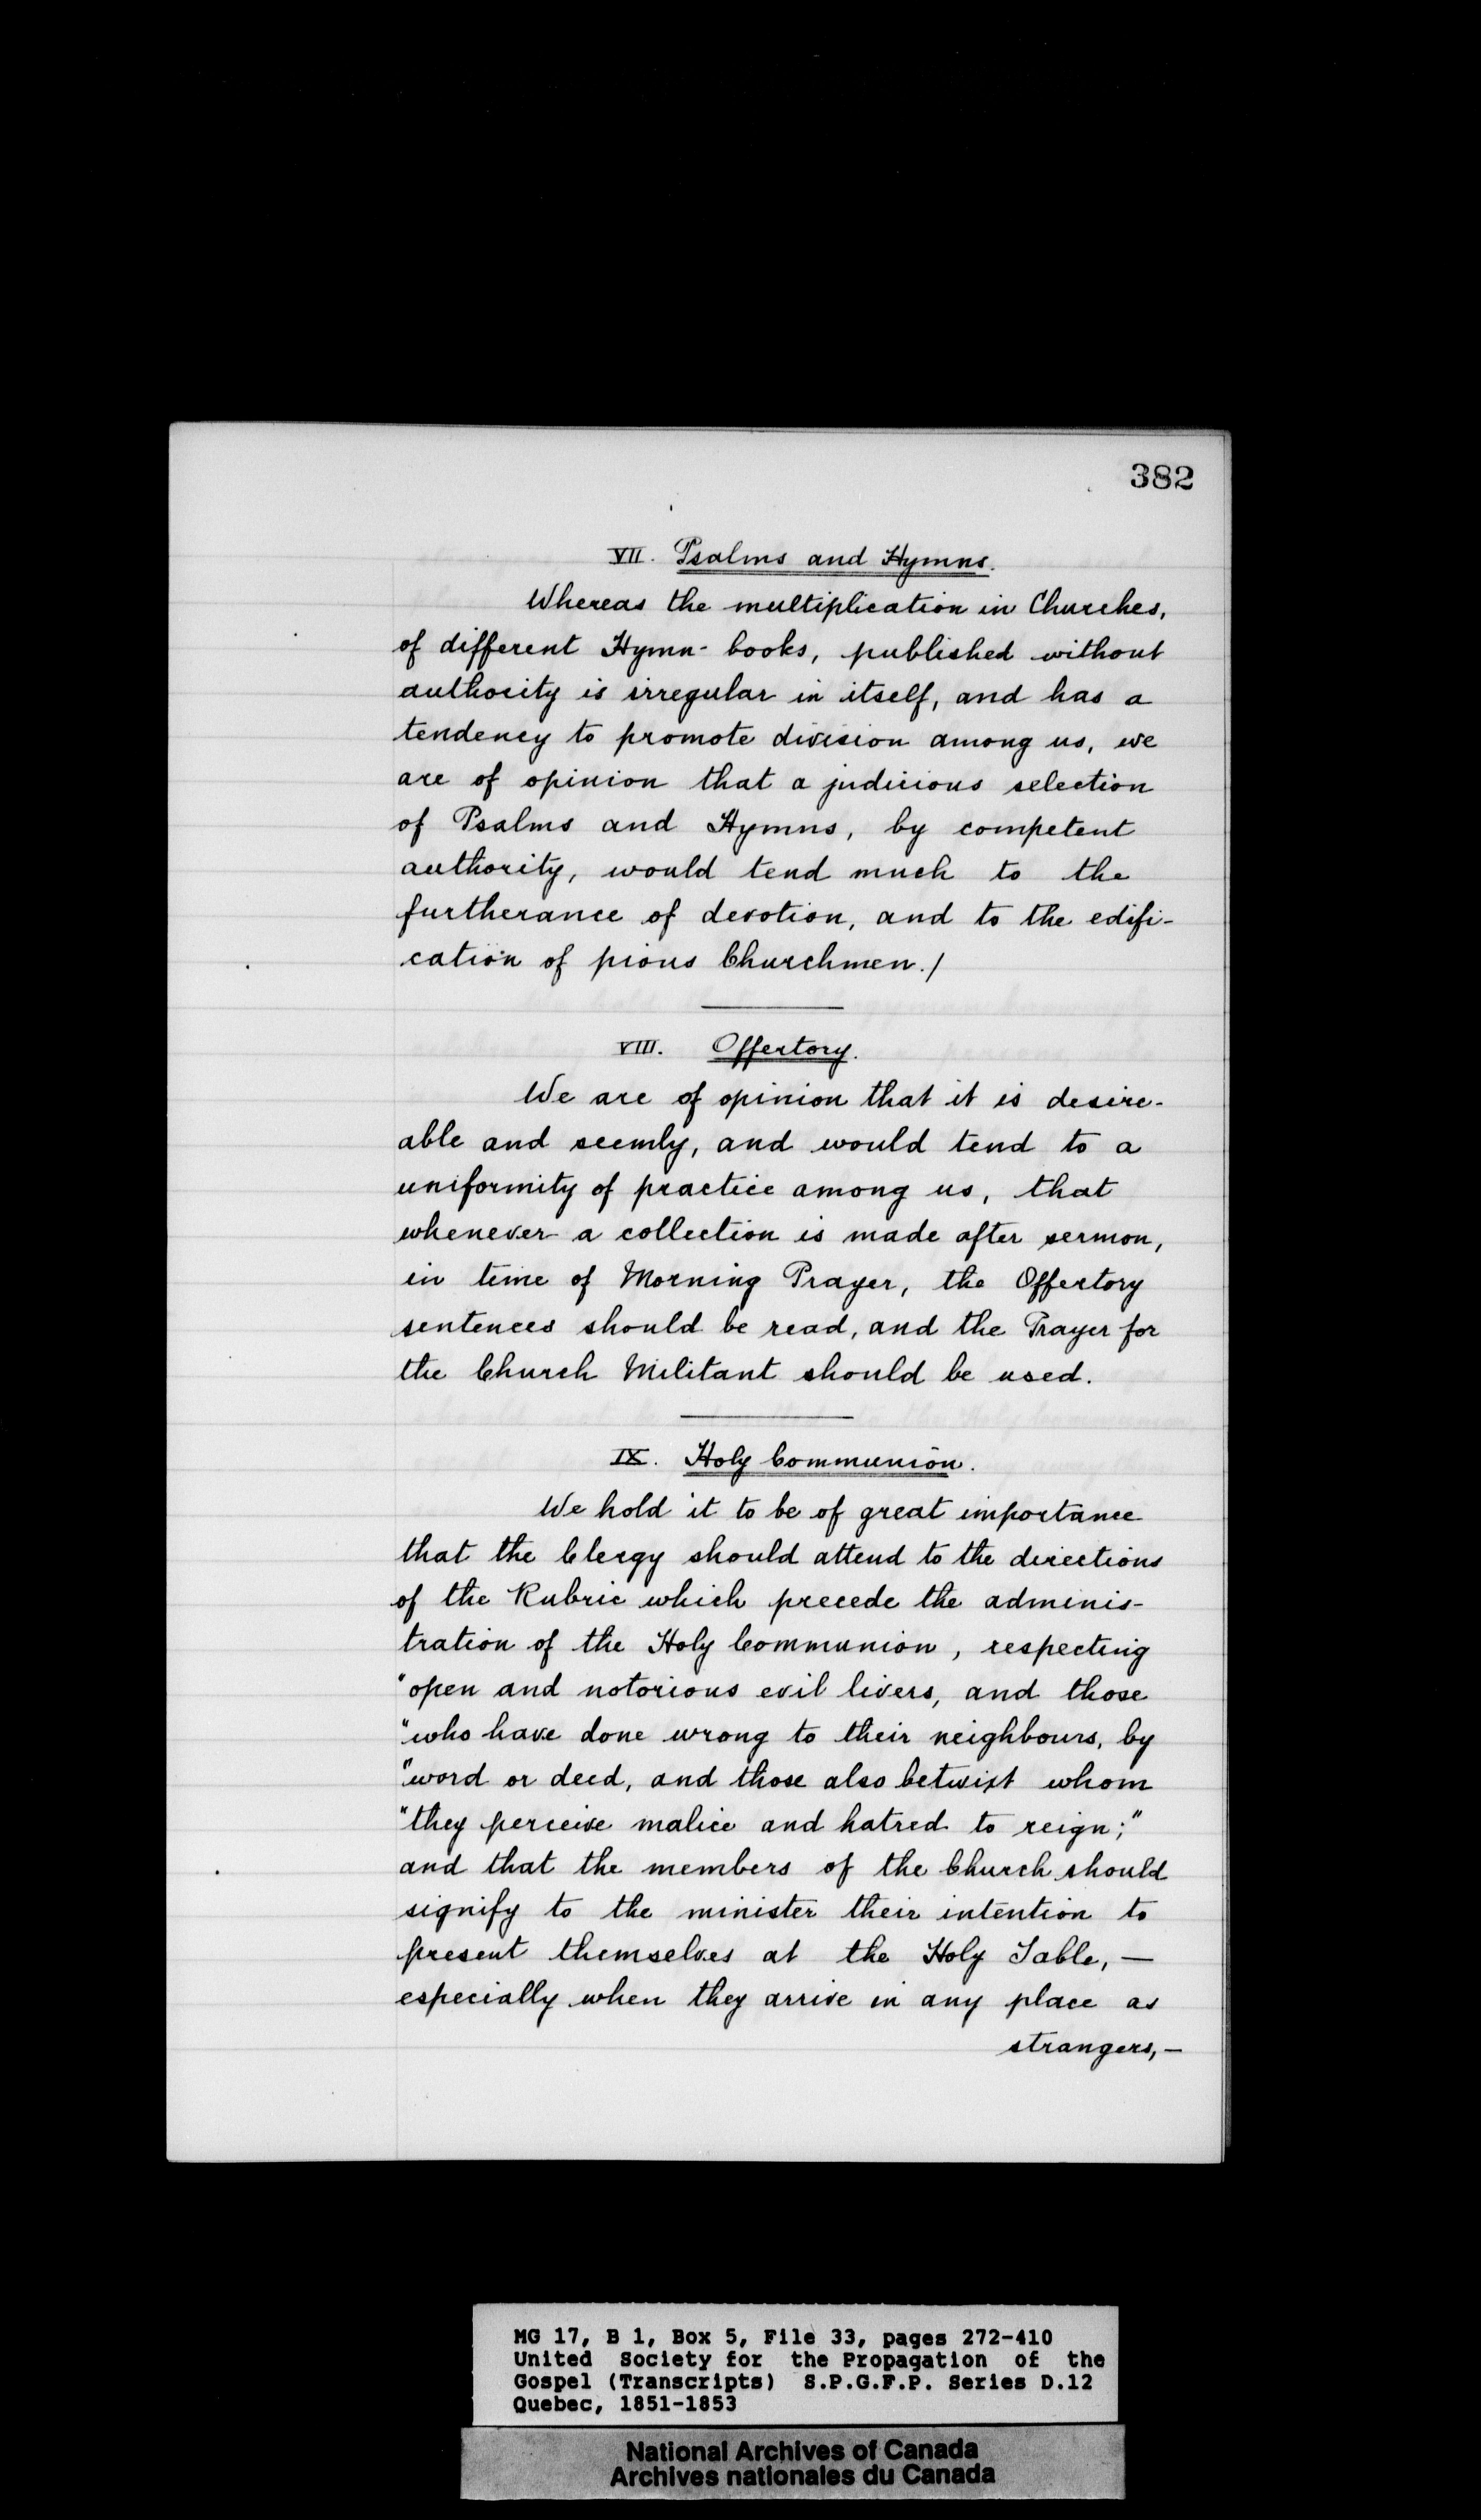 382
VII. Psalms and Hymns.
Whereas the multiplication in Churches,
of different Hymn-books, published without
authority is irregular in itself, and has a
tendency to promote division among us, we
are of opinion that a judicious selection
of Psalms and Hymns, by competent
authority, would tend much to the
furtherance of devotion, and to the edifi-
cation of pious Churchmen./
VIII. Offertory.
We are of opinion that it is desire-
able and seemly, and would tend to a
uniformity of practice among us, that
whenever a collection is made after sermon,
in time of Morning Prayer, the Offertory
sentences should be read, and the Prayer for
the Church Militant should be used.
IX. Holy Communion.
We hold it to be of great importance
that the Clergy should attend to the directions
of the Rubric which precede the adminis-
tration of the Holy Communion, respecting
"open and notorious evil livers, and those
"who have done wrong to their neighbours, by
"word or deed, and those also betwixt whom
"they perceive malice and hatred to reign;"
and that the members of the Church should
signify to the minister their intention to
present themselves at the Holy Table, —
especially when they arrive in any place as
strangers, —
MG 17, B 1, Box 5, File 33, pages 272-410
United Society for the Propagation of the
Gospel (Transcripts) S.P.G.F.P. Series D.12
Quebec, 1851-1853
National Archives of Canada
Archives nationales du Canada